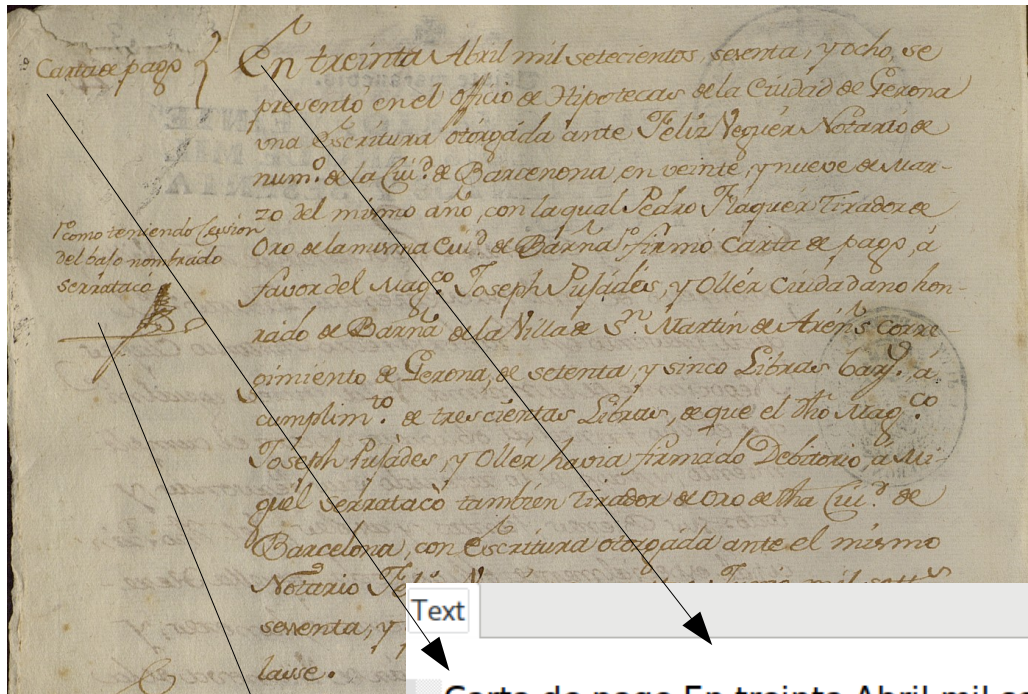 Carta de pago
En treinta Abril mil setecientos, sesenta, y ocho, se
presentó en el officio de Hipotecas de la Ciudad de Gerona
una escritura otorgada ante Feliz Veguér Notario de
num.º de la Ciu.d de Barcenona, en veinte, y nueve de Mar-
zo del mismo año, con la qual Pedro Flaquér Tirador de
Oro de la misma Ciu.d de Barña firmó Carta de pago, á
como teniendo Cession
del bajo nombrado
serrataco
favor del Mag.co Joseph Pujádes, y Ollér Ciudadano hon-
rado de Barña de la Villa de S.n Martin de Aréns corre-
gimiento de Gerona, de setenta, y sinco Libras barj.s, á
cumplim.to de trescientas Libras, de que el dho Mag.co
Joseph Pujádes, y Ollér havia firmado Debitorio, á Mi-
guél serrataco tambien Tirador de oro de dha Ciu.d de
Barcelona, con escritura otorgada ante el mismo
Notario
sesenta, y
lasse.
Text
Carta de pago En treinta Abril mil